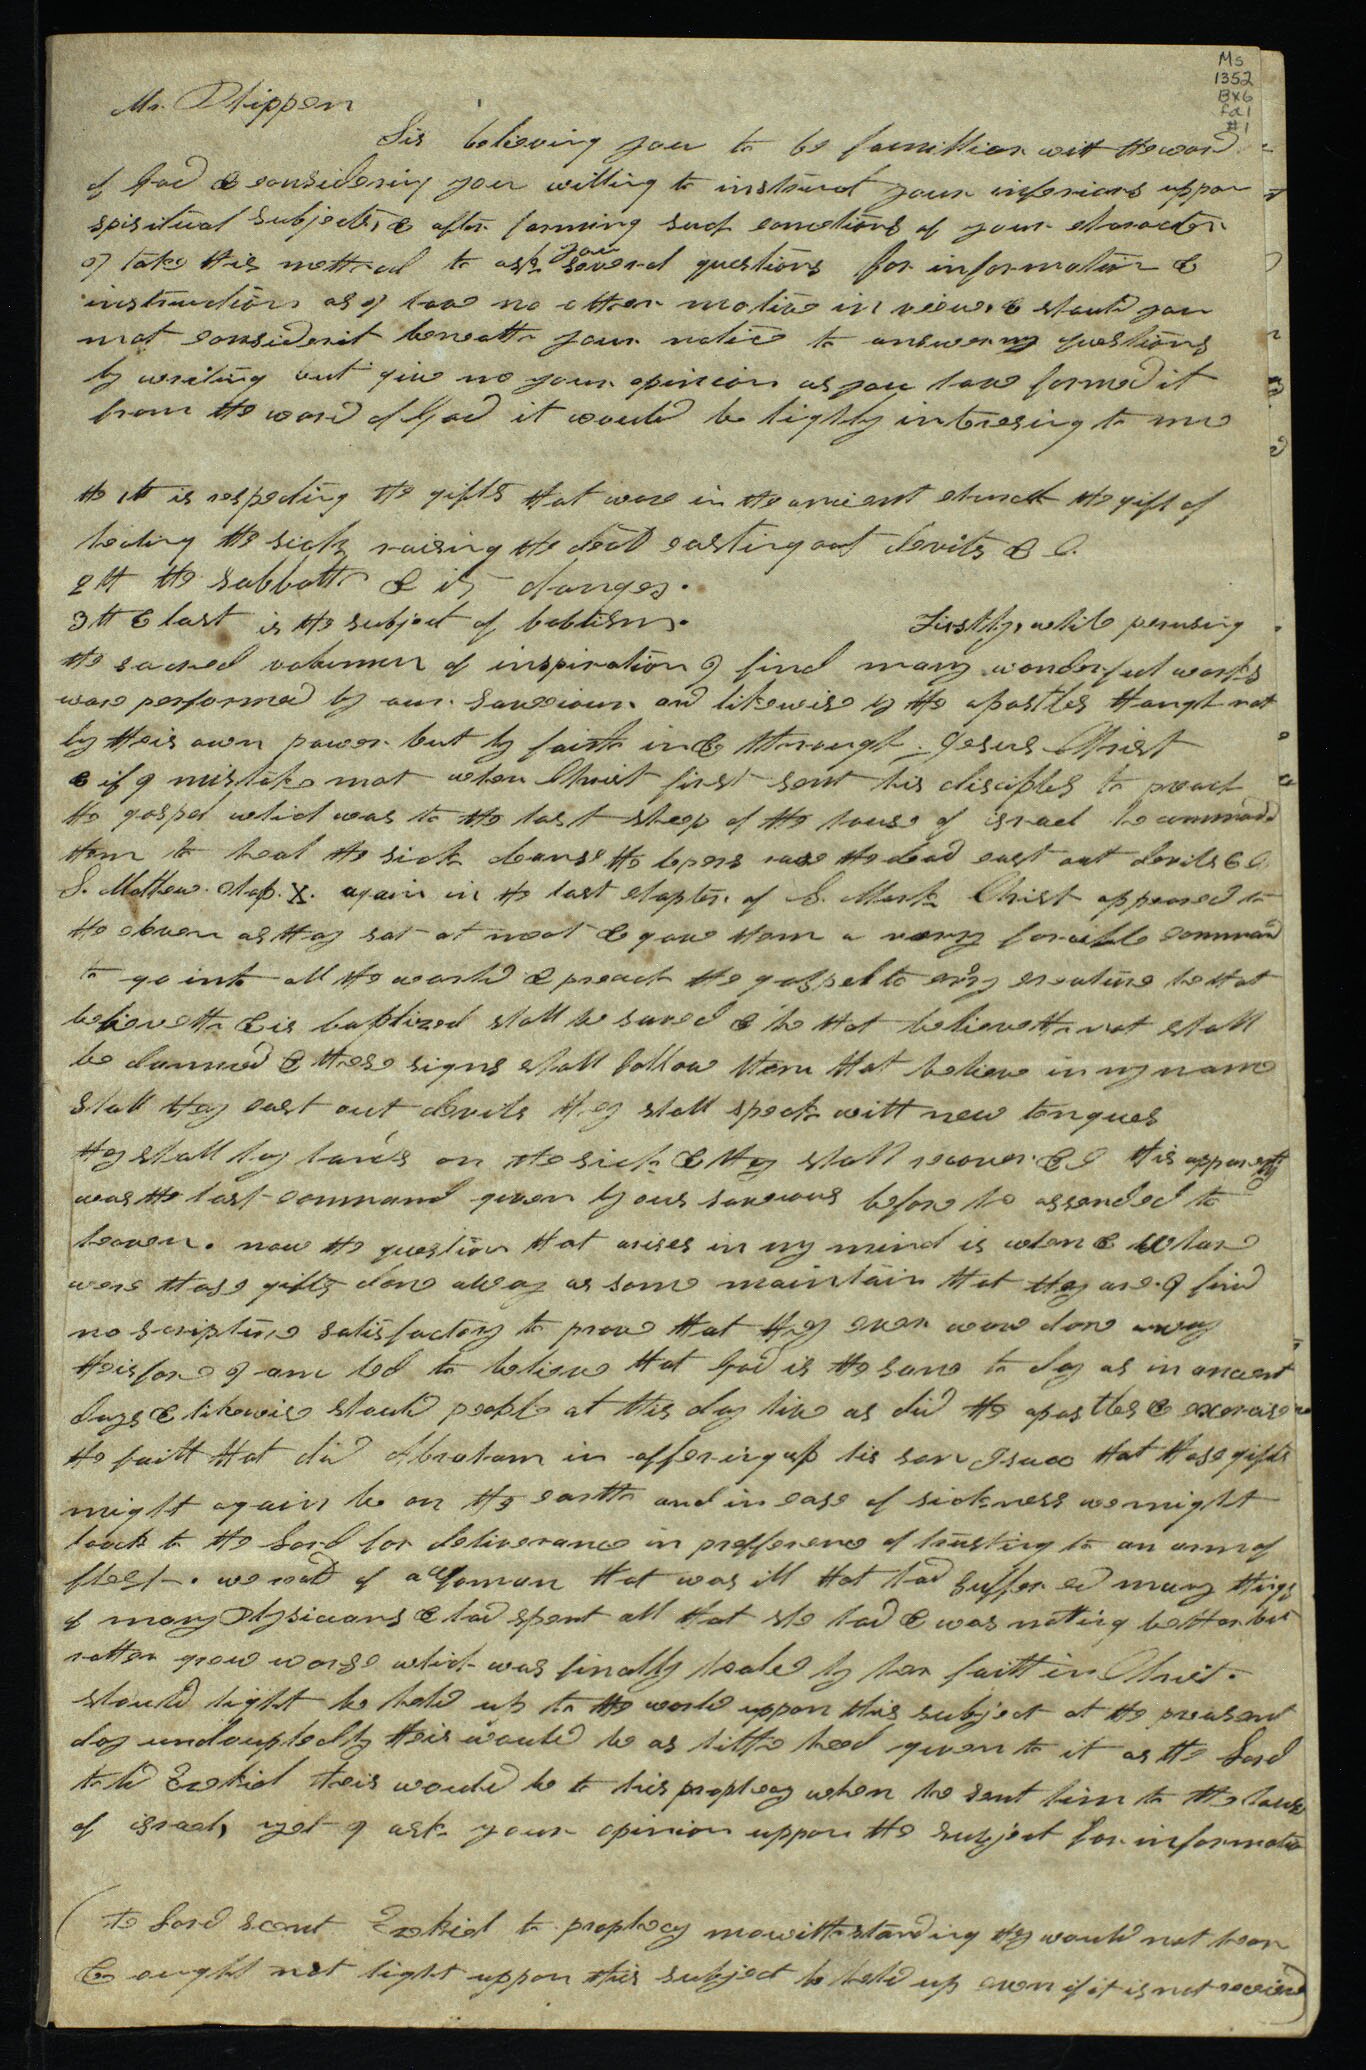 Ms
1352
Bx6
fd1
#1
Mr. Phippen
Sir believing you to be famillier with the word
of God & considering you willing to instruct your inferiors uppon
spiritual subjects, & after forming such conections of your character
I take this method to ask you several questions for information &
instruction as I have no other motive in view & should you
not consider it beneath your notice to answer my questions
by writing but give me your opinion as you have formed it
from the word of God it would be highly intresing to me
the 1th is respecting the gifts that ware in the ancient church the gift of
healing the sick raising the dead casting out devils & C.
2th the sabbath & its changes.
3th & last is the subject of babtism. Firstly, while perusing
the sacred volumn of inspiration I find many wonderful works
ware performed by our saveiour and likewise by the apostles though not
by their own power but by faith in & through Jesus Christ
& if I mistake not when Christ first sent his disciples to preach
the gospel which was to the lost sheep of the house of israel he command
them to heal the sick cleanse the lepers rase the dead cast out devils & C.
S. Mathew. chap. X. again in the last chapter of S. Mark Christ appeared to
the eleven as they sat at meat & gave them a very forceable command
to go into all the world & preach the gospel to evry creature he that
believeth & is baptized shall be saved & he that believeth not shall
be damned & these signs shall follow them that believe in my name
shall they cast out devils they shall speak with new tongues
they shall lay hands on the sick & they shall recover & C this apparently
was the last command given by our saveiour before he assended to
heaven. now the question that arises in my mind is when & whare
were those gifts done away as some maintain that they are. I find
no scripture satisfactory to prove that they ever ware done away
theirfore I am led to believe that God is the same to day as in ancient
days & likewise should people at this day live as did the apostles & exercise
the faith that did Abraham in offering up his son Isaac that those gifts
might again be on the earth and in case of sickness we might
look to the Lord for deliverance in prefference of trusting to an arm of
flesh. we read of a woman that was ill that had suffered many things
of many Physicians & had spent all that she had & was nothing better but
rather grew worse which was finally healed by her faith in Christ.
should light be held up to the world uppon this subject at the preasent
day undouptedly their would be as little heed given to it as the Lord
told Ezekiel their would be to his prophecy when he sent him to the house
of israel, yet I ask your opinion uppon the subject for informatio
(the Lord scent Ezekiel to prophecy nowithstanding they would not hear
& ought not light uppon this subject be held up even if it is not received)